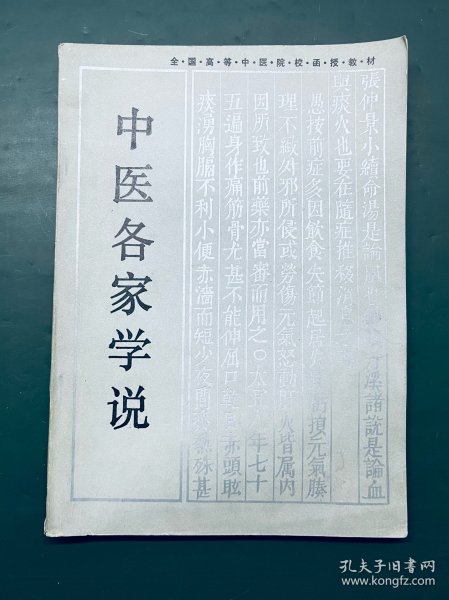 全·国·高·等·中·医·院·校·函·授·教·材
中医各家学说
張仲景小續命湯是論風 溪諸説是論血
與痰火也要在隨症推移消息
愚按前症多因飲食失節起居 損元氣腠
理不緻外邪所侵或勞傷元氣怒動 人皆属内
因所致也前藥亦當審而用之〇大 年七十
五遍身作痛筋骨尤甚不能伸屈口 赤頭眩
痰湧胸膈不利小便赤濇而短少夜間 殊甚
孔夫子旧书网
www.kongfz.com